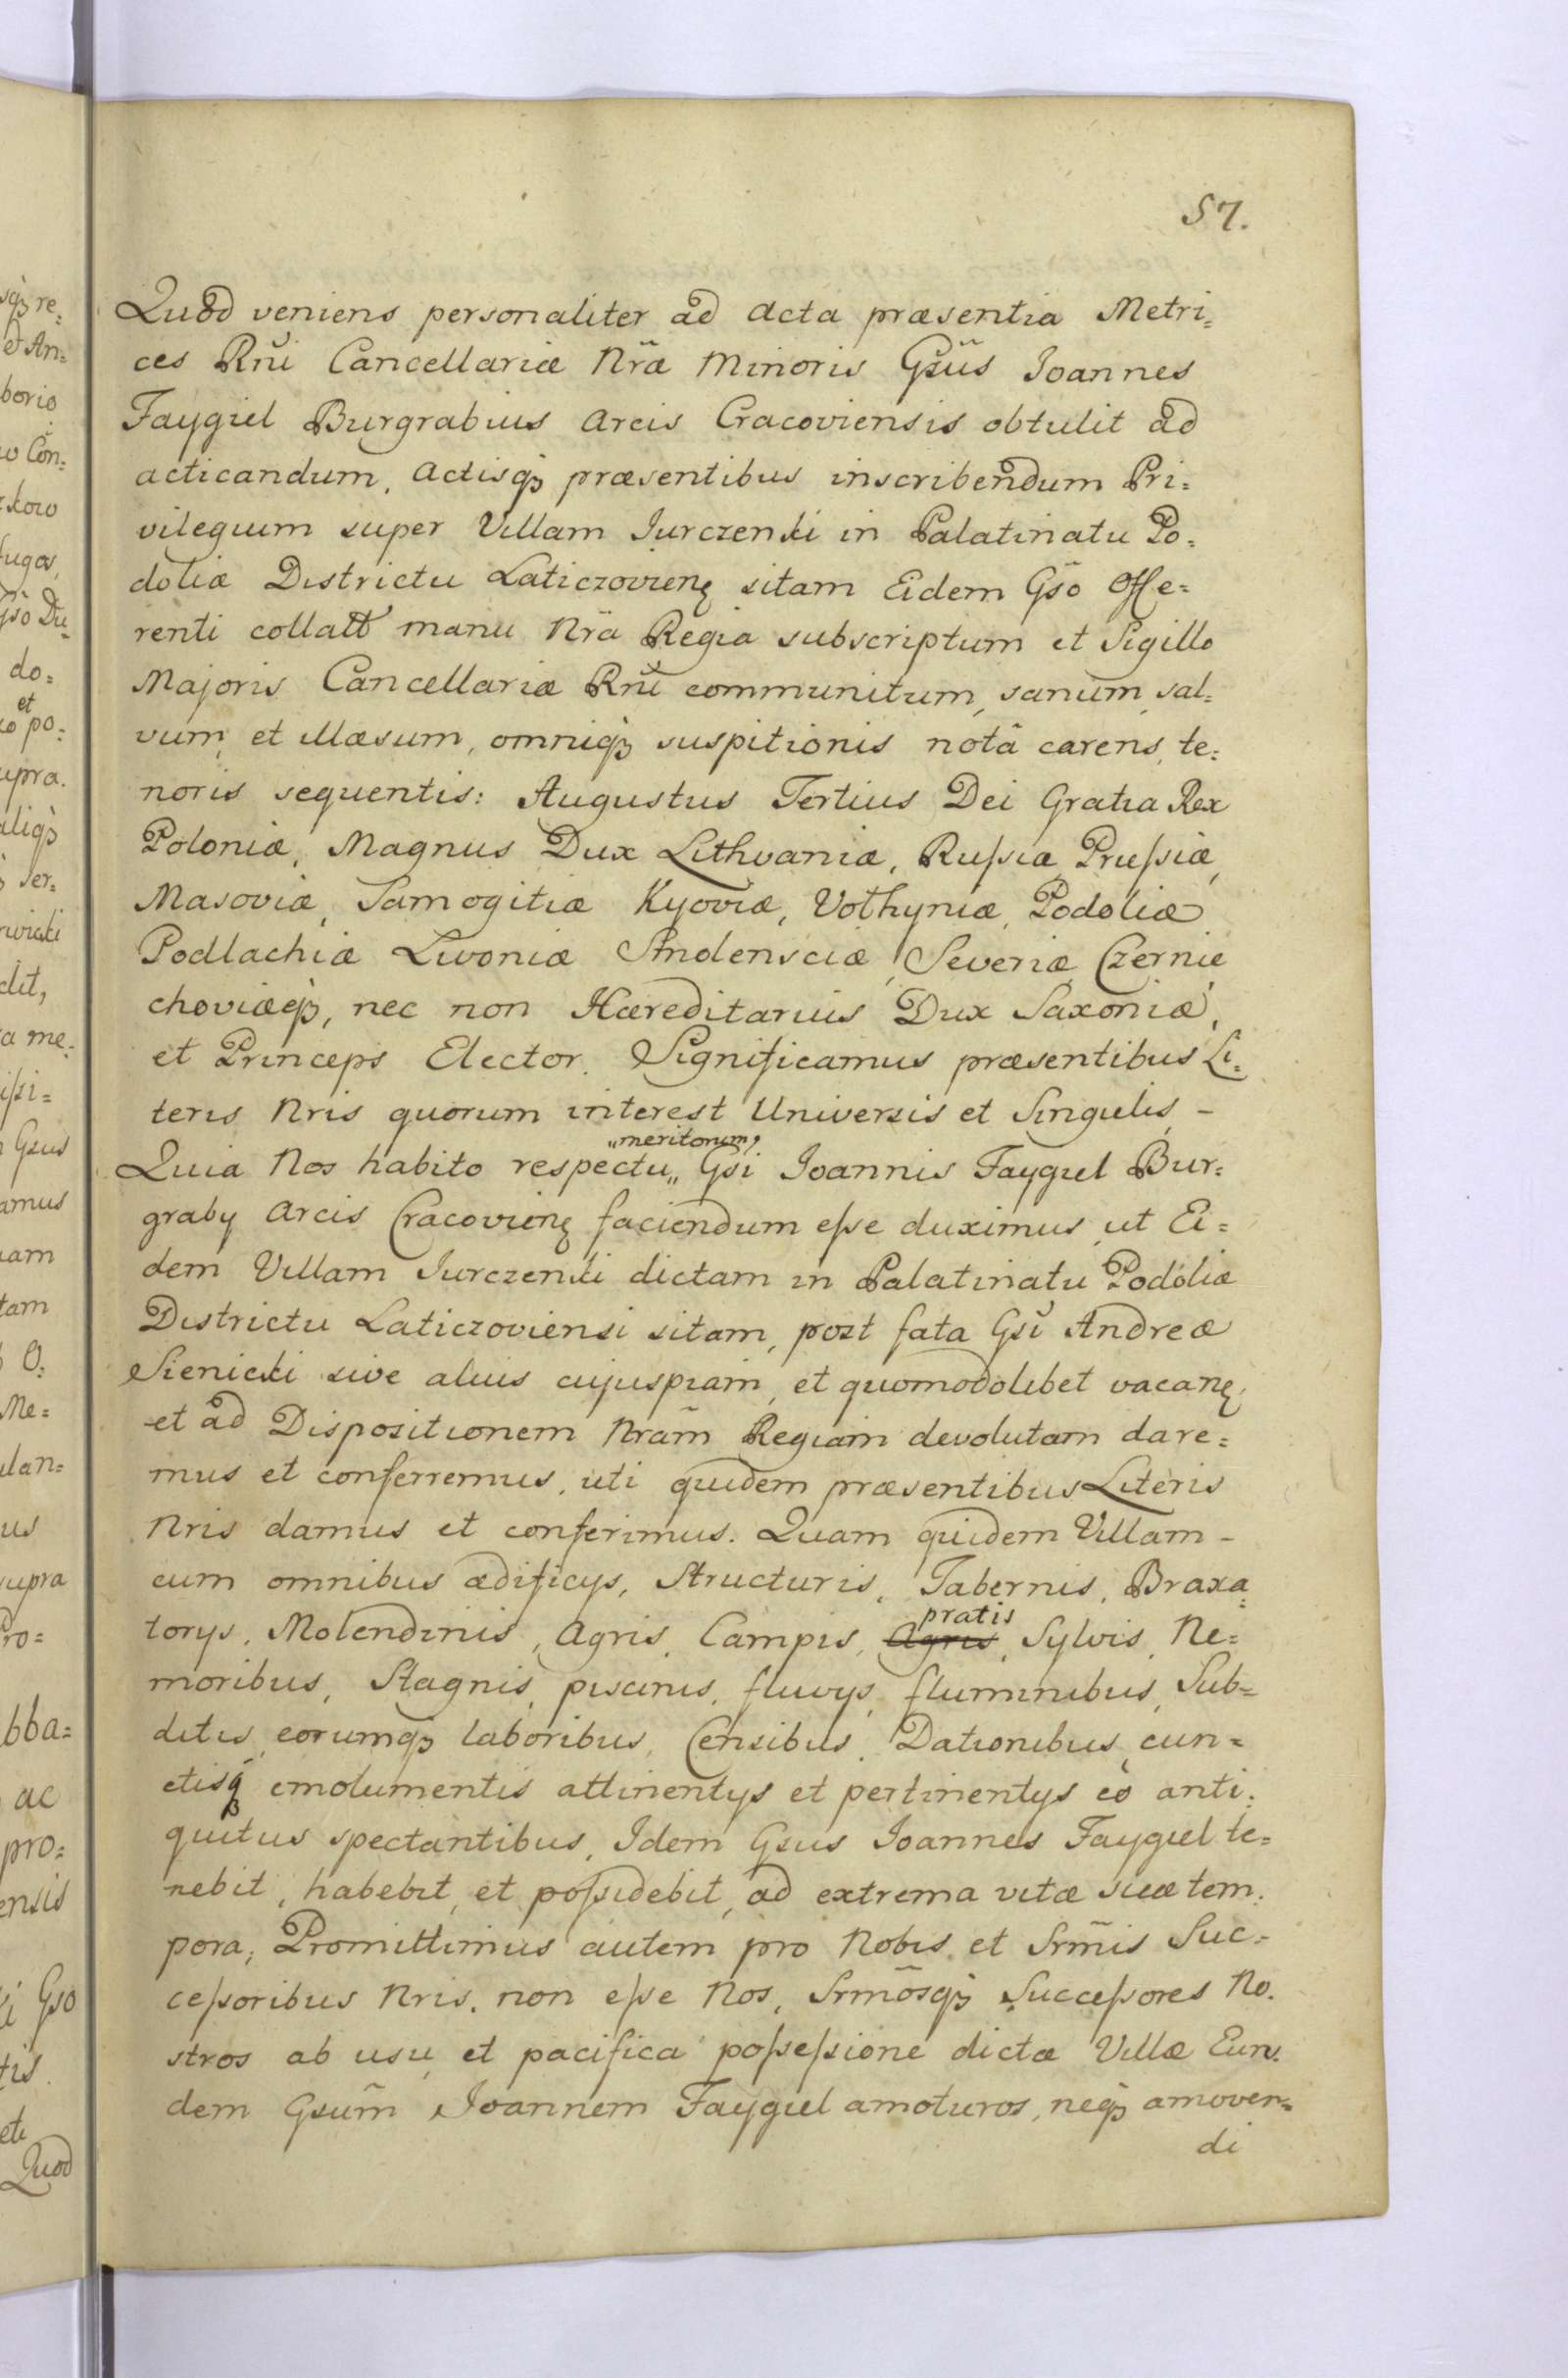 57.
Quod veniens personaliter ad acta præsentia Metri=
ces Rñi Cancellariæ Nræ Minoris Gsus Joannes
Faygiel Burgrabius Arcis Cracoviensis obtulit ad
acticandum, Actisq3 præsentibus inscribendum Pri=
vilegium super Villam Jurczenki in Palatinatu Po=
doliæ Districtu Laticzovienę sitam Eidem Gso Offe=
renti collatt manu Nra Regia subscriptum et Sigillo
Majoris Cancellariæ Rñi communitum, sanum, sal=
vum, et illæsum, omniq3 suspitionis notâ carens, te=
noris sequentis: Augustus Tertius Dei Gratia Rex
Poloniæ, Magnus Dux Lithvaniæ, Rußiæ Prußiæ,
Masoviæ, Samogitiæ Kyoviæ, Volhyniæ, Podoliæ
Podlachiæ Livoniæ Smolensciæ, Severiæ, Czernie
choviæq3, nec non Hæreditarius Dux Saxoniæ,
et Princeps Elector. Significamus præsentibus Li=
teris Nris quorum interest Universis et Singulis, -
Quia Nos habito respectu „meritorum„ Gsi Joannis Faygiel Bur=
graby Arcis Cracovienę faciendum eße duximus, ut Ei=
dem Villam Jurczenki dictam in Palatinatu Podoliæ
Districtu Laticzoviensi sitam, post fata Gsi Andreæ
Sienicki sive alius cujuspiam, et quomodolibet vacanę,
et ad Dispositionem Nram Regiam devolutam dare=
mus et conferremus, uti quidem præsentibus Literis
Nris damus et conferimus. Quam quidem Villam -
cum omnibus ædificys, Structuris, Tabernis, Braxa=
torys, Molendinis, Agris, Campis, Agris pratis, Sylvis, Ne=
moribus, Stagnis, piscinis, fluvys, fluminibus, Sub=
ditis, eorumq3 laboribus, Censibus, Dationibus, cun=
ctisq3 emolumentis attinentys et pertinentys eò anti=
quitus spectantibus, Idem Gsus Joannes Faygiel te=
nebit, habebit, et poßidebit, ad extrema vitæ suæ tem=
pora; Promittimus autem pro Nobis, et Srmis Suc=
ceßoribus Nris, non eße Nos, Srmosq3 Succeßores No=
stros ab usu, et pacifica poßeßione dictæ Villæ Eun=
dem Gsum Joannem Faygiel amoturos, neq3 amoven=
di